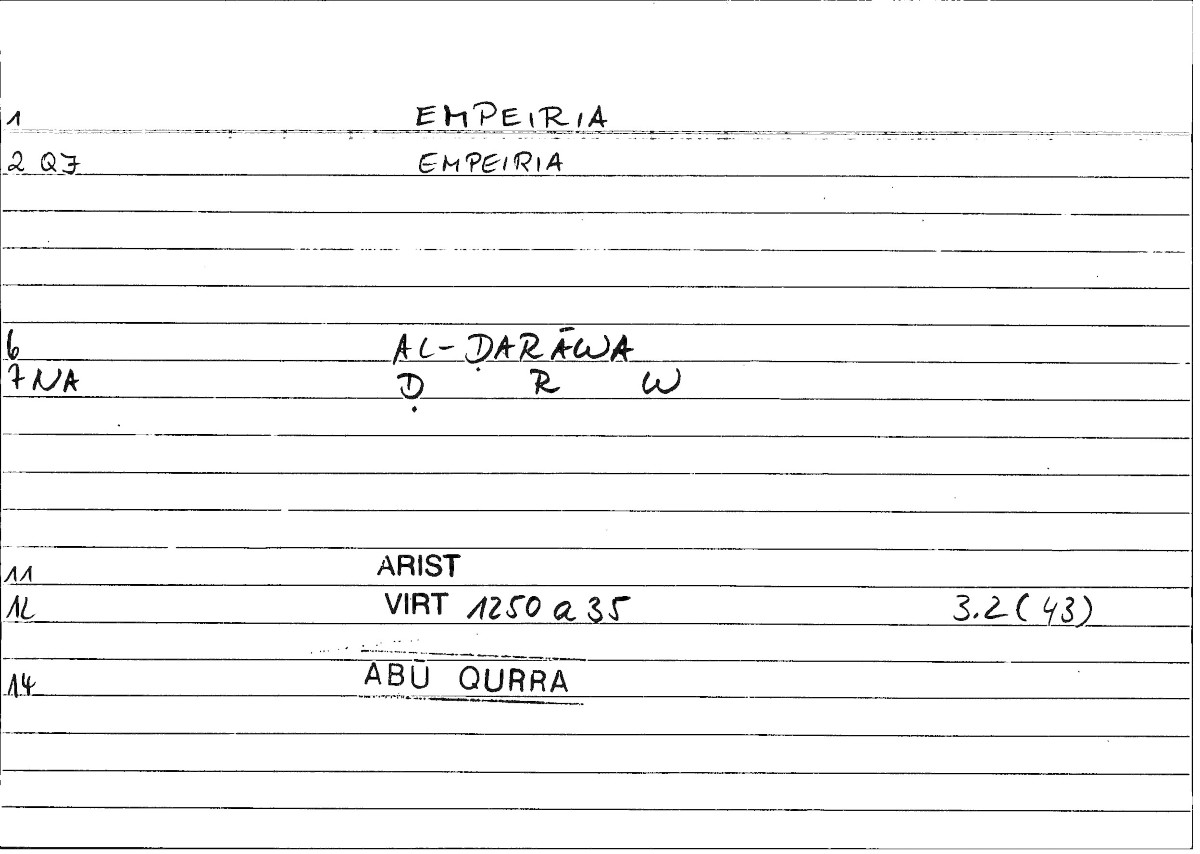 1 EMPEIRIA
2 QF EMPEIRIA
6 AL-ḌARĀWA
7 NA Ḍ R W
11 ARIST
12 VIRT 1250 a 35 3.2 (43)
14 ABŪ QURRA